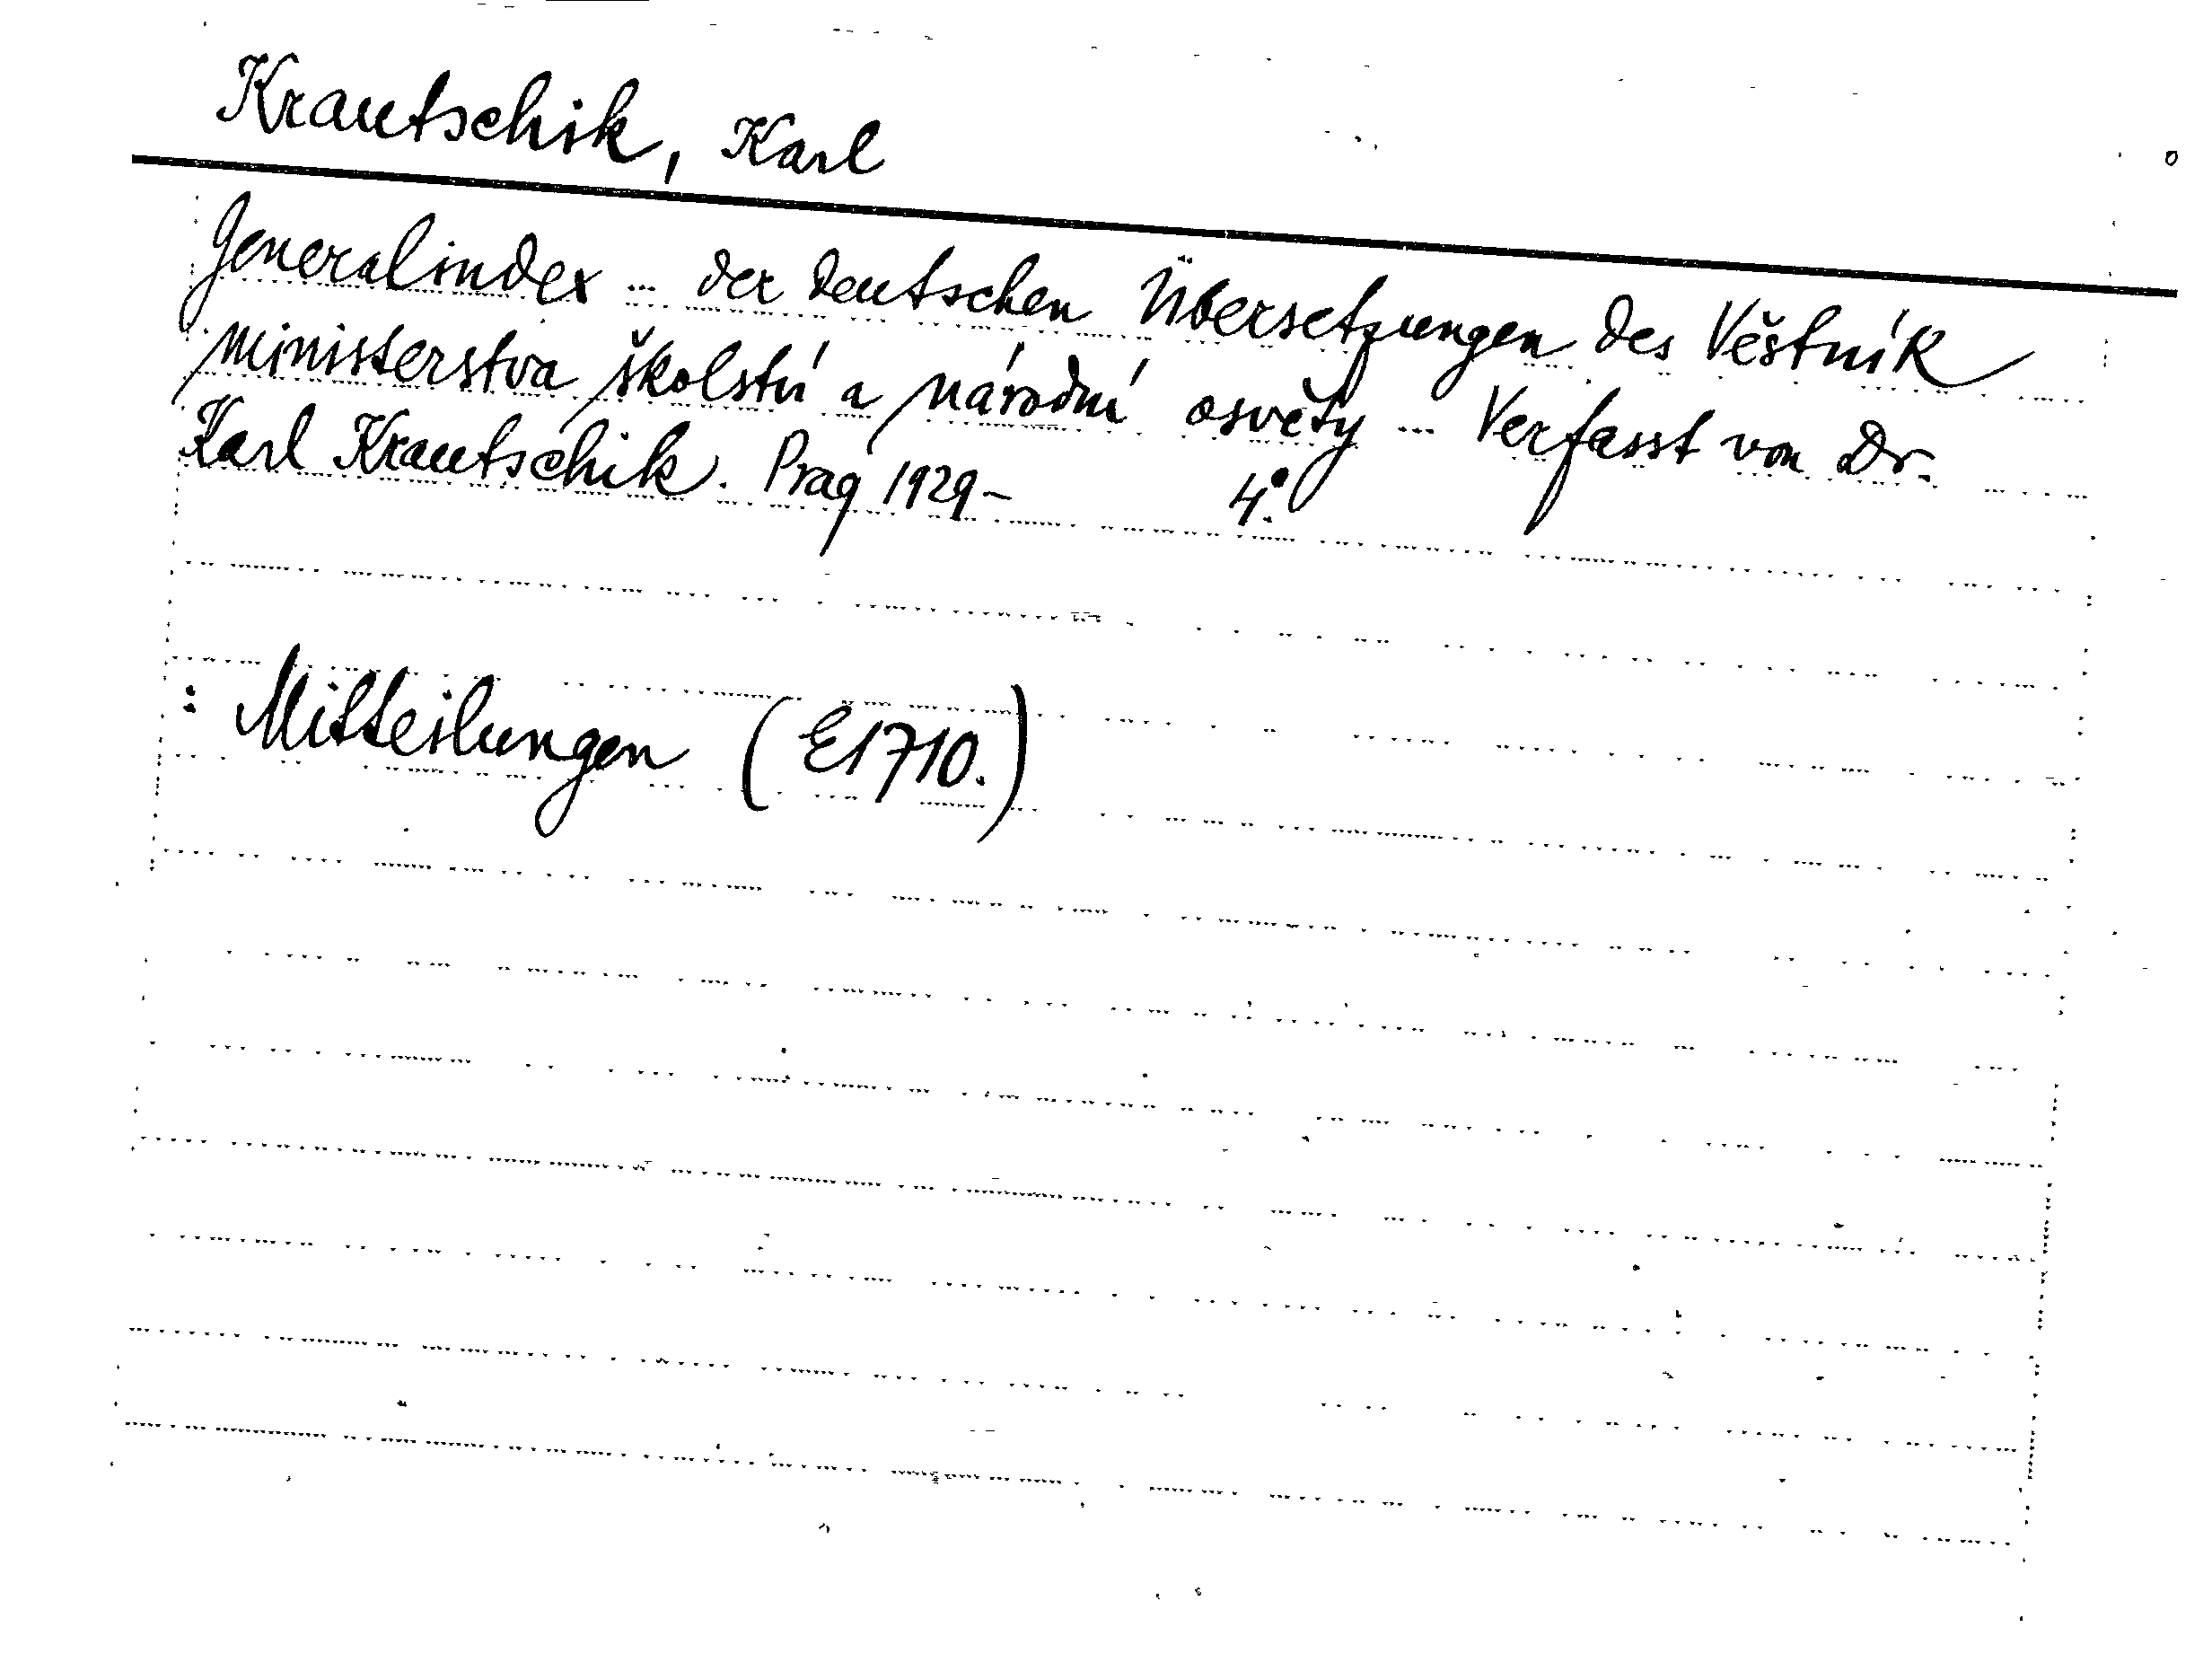 Krautschik, Karl
Generalindex ... der deutschen Übersetzungen des Věstník
ministerstva školství a národní osvěty ... Verfasst von Dr.
Karl Krautschik. Prag 1929- 4°.
: Mitteilungen (E1710.)